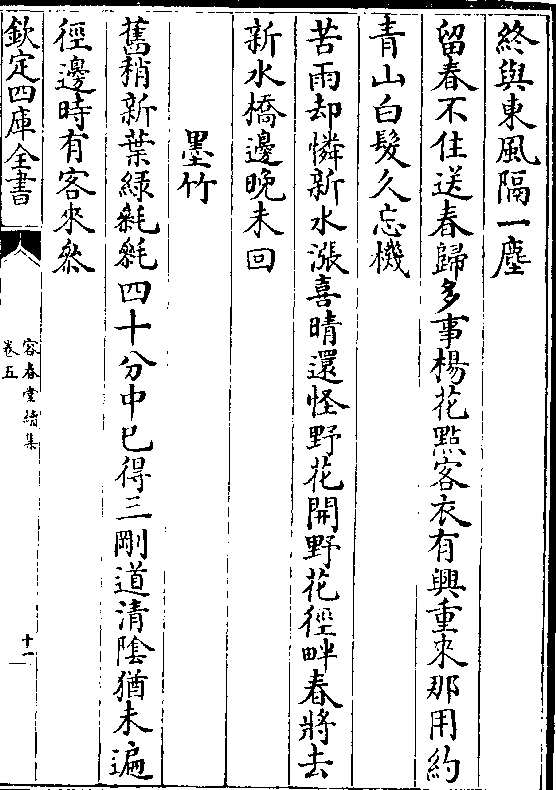 終與東風隔一塵
留春不住送春歸多事楊花點客衣有興重來那用約
青山白髮久忘機
苦雨却憐新水漲喜晴還怪野花開野花徑畔春將去
新水橋邊晚未回
墨竹
舊稍新葉綠毿毿四十分中巳得三剛道清陰猶未遍
徑邊時有客來叅
欽定四庫全書
容春堂續集
卷五
十一